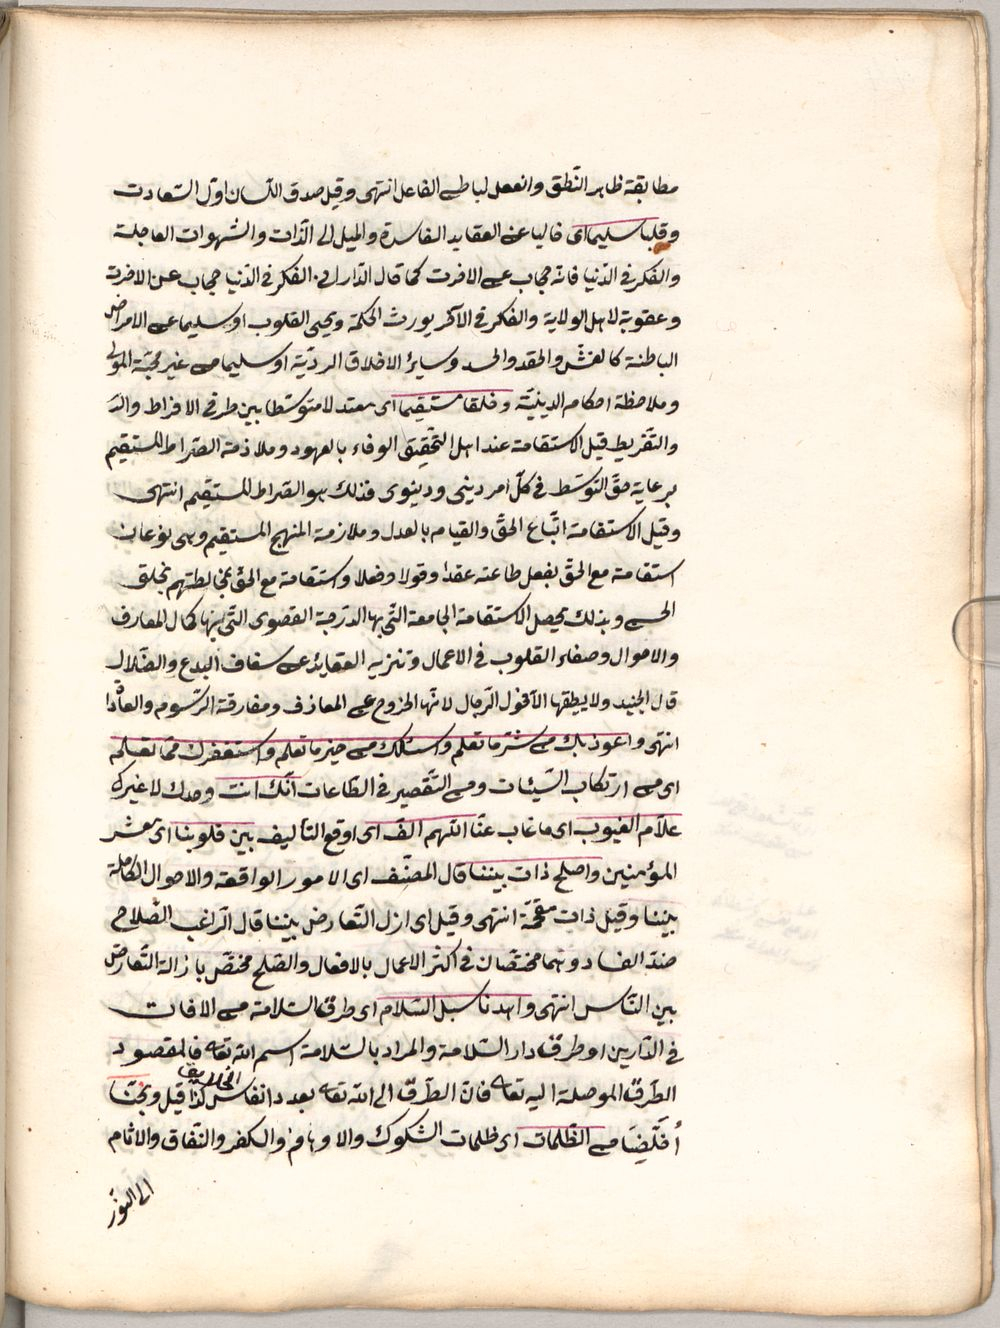 مطابقة ظاهر النطق وانفعل لباطن الفاعل انتهى وقيل صدق اللسان اول السعادت
وقلبا سليما اى خاليا عن العقايد الفاسدة والميل الى الذات والشهوات العاجلة
والفكر فى الدنيا فانه حجاب عن الاخرت كما قال الدارانى الفكر فى الدنيا حجاب عن الاخرت
وعقوبة لاهل الولاية والفكر فى الآخر يورث الحكمة ويحيى القلوب او سليما عن الامراض
الباطنة كالغش والحقد والحسد وسائر الاخلاق الرديّة او سليما من غير محبّة المولى
وملاحظة احكام الدينيّة وخلقا مستقيما اى معتدلا متوسّطا بين طرفى الافراط
والتفريط قيل الاستقامة عند اهل التحقيق الوفاء بالعهود وملازمة الصراط المستقيم
برعاية حقّ التوسّط فى كلّ امر دينى ودينوى فذلك هو الصراط المستقيم انتهى
وقيل الاستقامة اتّباع الحقّ والقيام بالعدل وملازمة المنهج المستقيم وهى نوعان
استقامة مع الحقّ بفعل طاعته عقدا وقولا وفعلا واستقامة مع الخلق بمخالطتهم بخلق
الحسن وبذلك يحصل الاستقامة الجامعة التّى بها الدّرجة القصوى التّى بها كمال المعارف
والاحوال وصفاء القلوب فى الاعمال وتنزيه العقايد عن سفاف البدع والضّلال
قال الجنيد ولا يطيقها الا فحول الرّجال لانّها الخروج عن المعازف ومفارقة الرّسوم والعادا
انتهى واعوذ بك من شرّ ما تعلم واسئلك من خير ما تعلم واستغفرك ممّا تعلمه
اى من ارتكاب السّيئات ومن التّقصير فى الطّاعات انّك انت وحدك لا غيرك
علاّم الغيوب اى ما غاب عنّا اللّهم الّف اى اوقع التأليف بين قلوبنا اى معشر
المؤمنين واصلح ذات بيننا قال المصنّف اى الامور الواقعة والاحوال الكاملة
بيننا وقيل ذات مقحمة انتهى وقيل اى ازل التّعارض بيننا قال الرّاغب الصّلاح
ضدّ الفساد وهما مختصّان فى اكثر الاعمال بالافعال والصّلح مختصّ بازالة التّعارض
بين النّاس انتهى واهدنا سبل السّلام اى طرق السّلامة من الافات
فى الدّارين او طرق دار السّلامة والمراد بالسّلامة اسم الله تعه فالمقصود
الطّرق الموصلة اليه تعه فانّ الطّرق الى الله تعه بعدد انفاس الخلايق كذا قيل ونجّنا
اى خلّصنا من الظّلمات اى ظلمات الشّكوك والاوهام والكفر والنّفاق والاثام
الى النّور